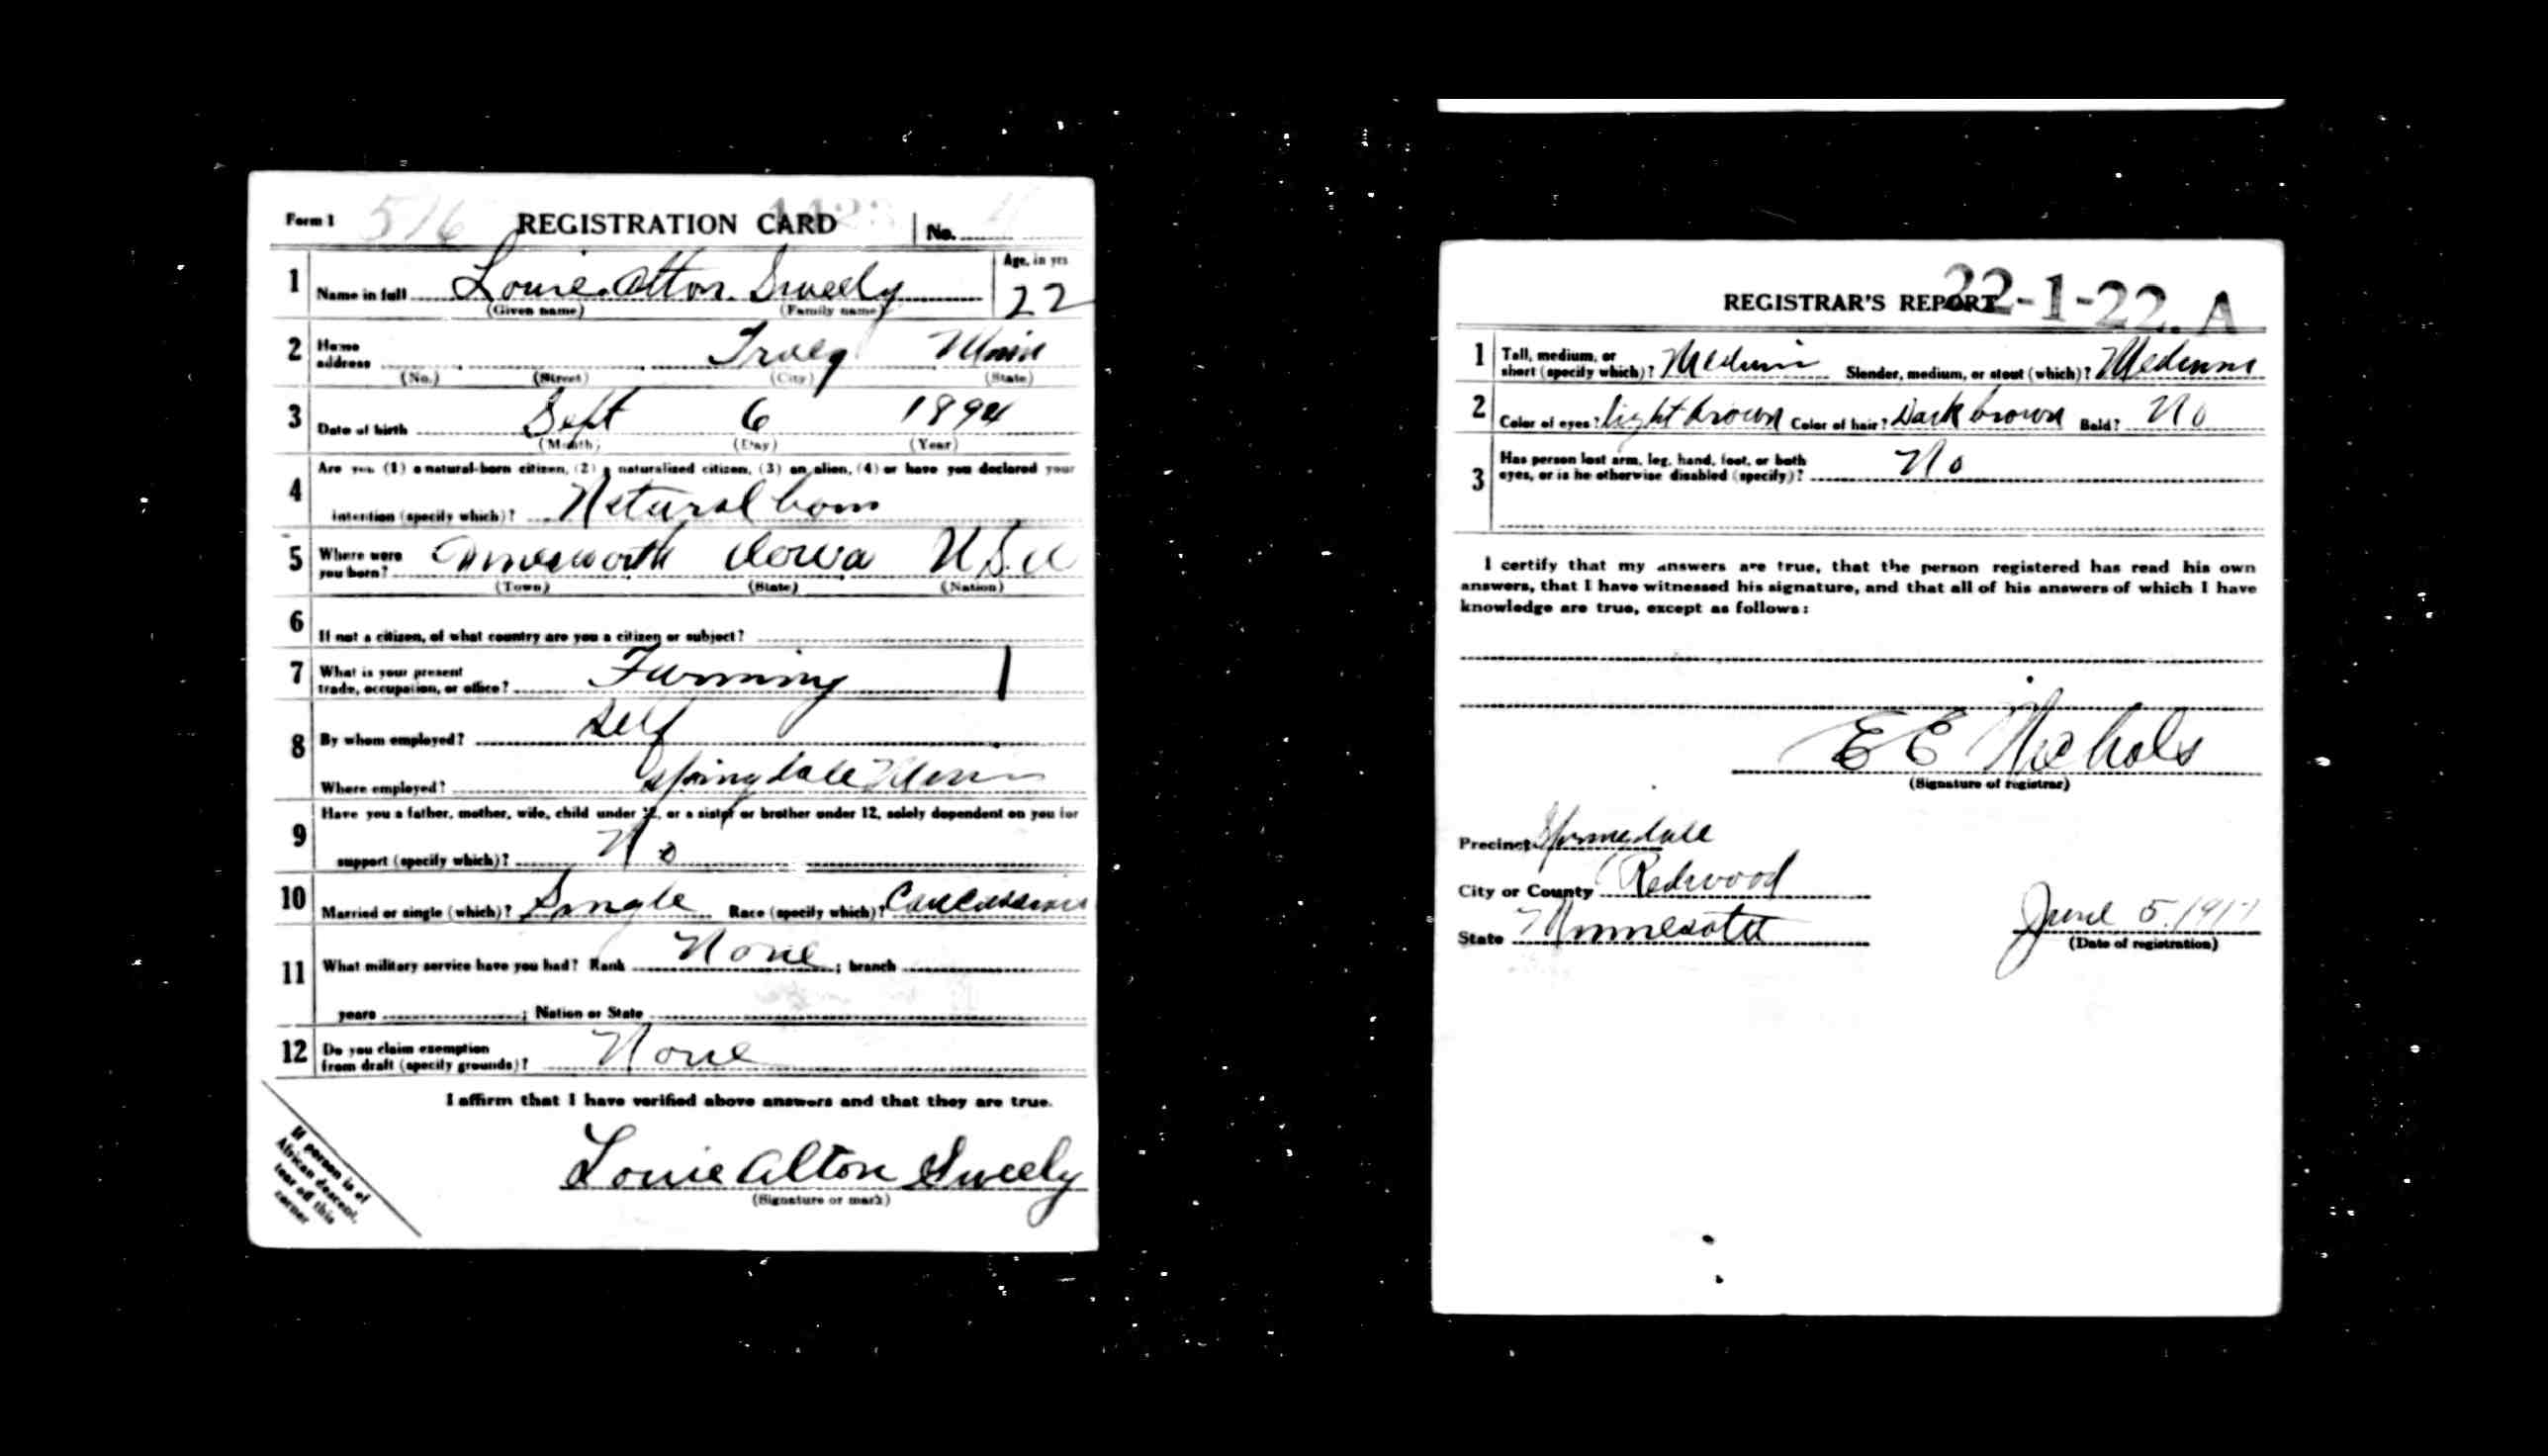 Form 1 516 REGISTRATION CARD No.
1 Name in full Louie Alton Sweely Age, in yrs 22
(Given name) (Family name)
2 Home address Tracy Minn
(No.) (Street) (City) (State)
3 Date of birth Sept 6 1894
(Month) (Day) (Year)
4 Are you (1) a natural-born citizen, (2) a naturalized citizen, (3) an alien, (4) or have you declared your
intention (specify which)? Natural born
5 Where were you born? Iowa U.S.A
(Town) (State) (Nation)
6 If not a citizen, of what country are you a citizen or subject?
7 What is your present trade, occupation, or office? Farming 1
8 By whom employed? Self
Where employed? Springdale Minn
9 Have you a father, mother, wife, child under 12, or a sister or brother under 12, solely dependent on you for
support (specify which)? No
10 Married or single (which)? Single Race (specify which)? Caucassian
11 What military service have you had? Rank None ; branch
years ; Nation or State
12 Do you claim exemption from draft (specify grounds)? None
I affirm that I have verified above answers and that they are true.
Louie Alton Sweely
(Signature or mark)
If person is of
African descent,
tear off this
corner
22-1-22. A
REGISTRAR'S REPORT
1 Tall, medium, or short (specify which)? Medium Slender, medium, or stout (which)? Medium
2 Color of eyes? light brown Color of hair? Dark brown Bald? No
3 Has person lost arm, leg, hand, foot, or both eyes, or is he otherwise disabled (specify)? No
I certify that my answers are true, that the person registered has read his own
answers, that I have witnessed his signature, and that all of his answers of which I have
knowledge are true, except as follows:
E E Nichols
(Signature of registrar)
Precinct Springdale
City or County Redwood
State Minnesota
June 5, 1917
(Date of registration)